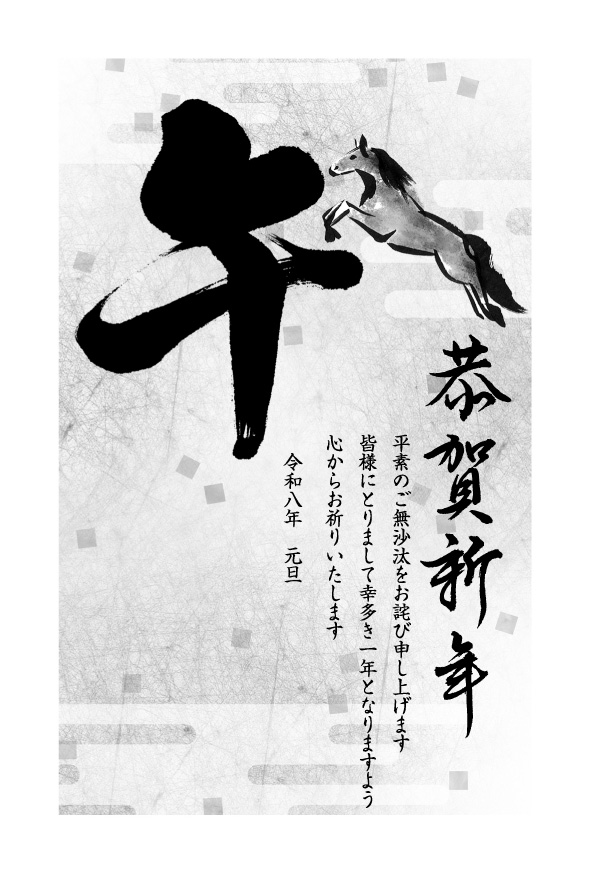 午
恭賀祈年
平素のご無沙汰をお詫び申し上げます
皆様にとりまして幸多き一年となりますよう
心からお祈りいたします
令和八年　元旦